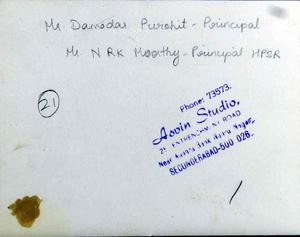 Mr. Damodar Purohit - Principal
Mr N R K Moorthy - Principal HPSR
21
Phone: 73573.
Asvin Studio,
ENTRENCHMENT ROAD
Near Nagar,
SECUNDERABAD-500 026.